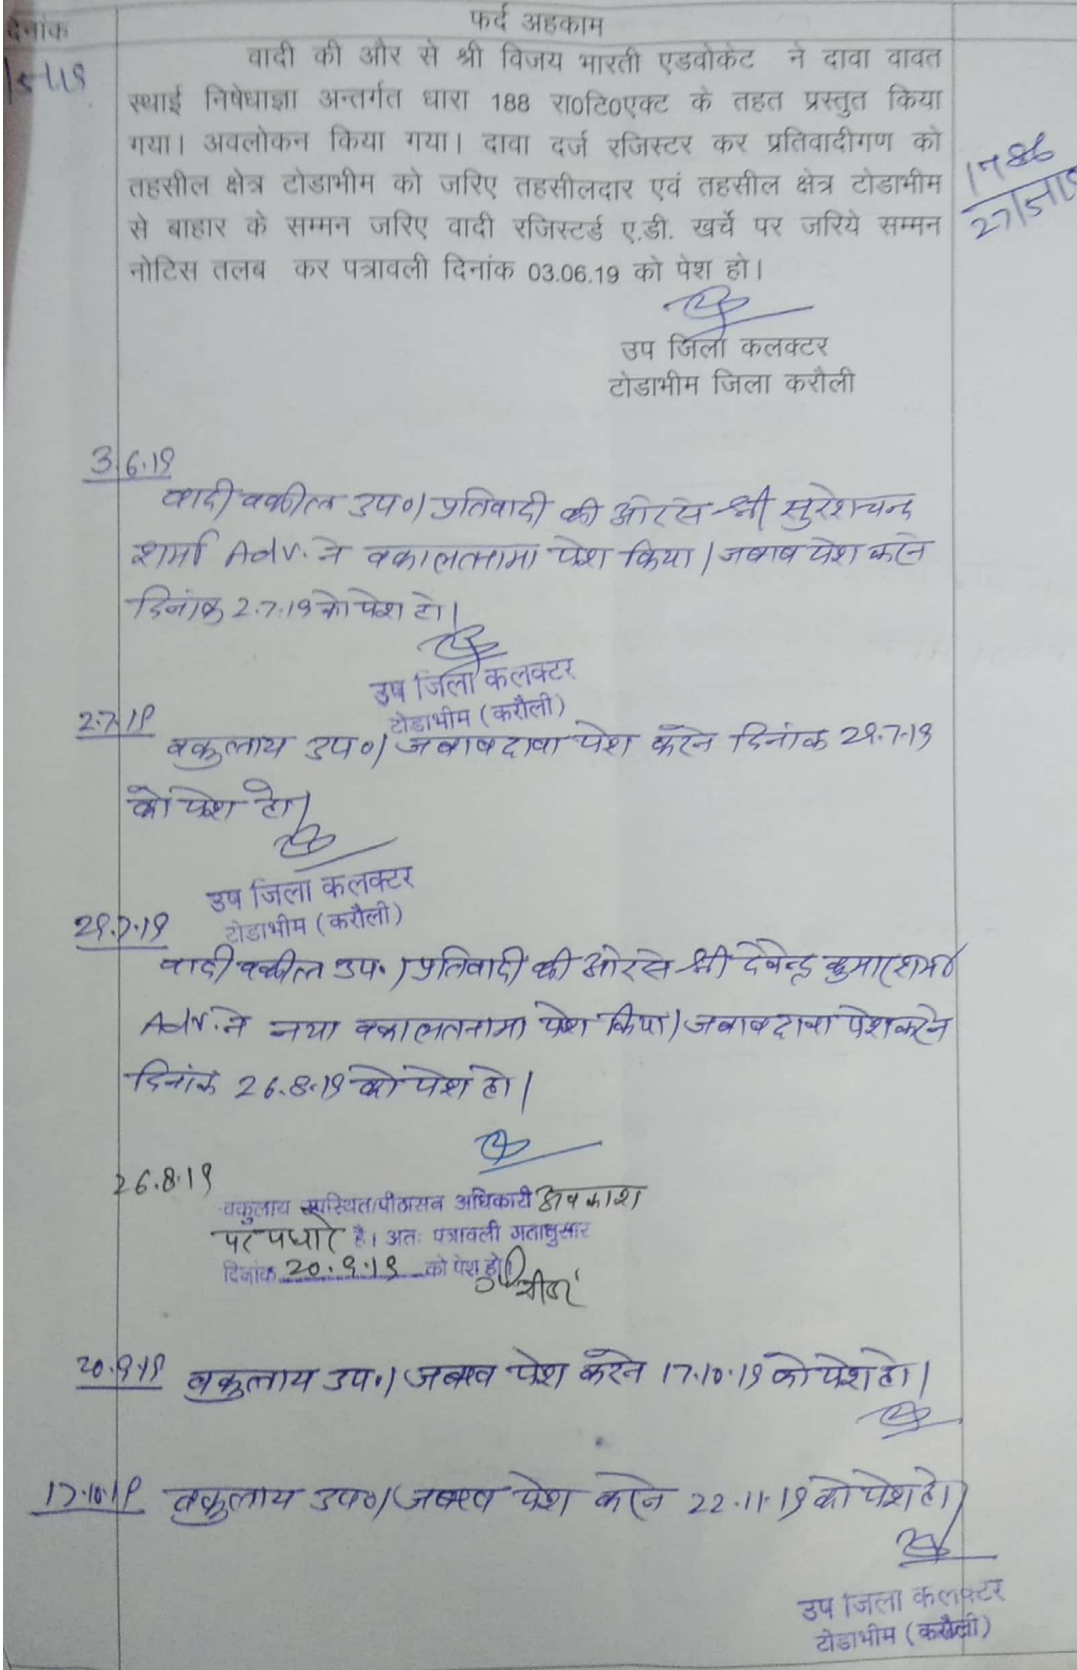 दिनांक
फर्द अहकाम
वादी की और से श्री विजय भारती एडवोकेट ने दावा वावत
स्थाई निषेधाज्ञा अन्तर्गत धारा 188 रा0टि0एक्ट के तहत प्रस्तुत किया
गया। अवलोकन किया गया। दावा दर्ज रजिस्टर कर प्रतिवादीगण को
तहसील क्षेत्र टोडाभीम को जरिए तहसीलदार एवं तहसील क्षेत्र टोडाभीम
से बाहार के सम्मन जरिए वादी रजिस्टर्ड ए.डी. खर्चे पर जरिये सम्मन
नोटिस तलब कर पत्रावली दिनांक 03.06.19 को पेश हो।
1786
उप जिला कलक्टर
टोडाभीम जिला करौली
3.6.19
वादी वकील उप०। प्रतिवादी की ओर से श्री सुरेशचन्द
शर्मा Adv. ने वकालतनामा पेश किया। जबाब पेश करने
दिनांक 2.7.19 को पेश हो।
उप जिला कलक्टर
टोडाभीम (करौली)
2.7.19
वकुलाय उप०। जबाब दावा पेश करने दिनांक 29.7.19
को पेश हो।
उप जिला कलक्टर
टोडाभीम (करौली)
29.7.19
वादी वकील उप.। प्रतिवादी की ओर से श्री देवेन्द्र कुमार शर्मा
Adv. ने नया वकालतनामा पेश किया। जबाब दावा पेश करने
दिनांक 26.8.19 को पेश हो।
26.8.19
वकुलाय उपस्थित/पीठासन अधिकारी अवकाश
पर पधारे है। अतः पत्रावली गतानुसार
दिनांक 20.9.19 को पेश हो।
20.9.19 वकुलाय उप.। जबाब पेश करने 17.10.19 को पेश हो।
17.10.19 वकुलाय उप०। जबाब पेश करने 22.11.19 को पेश हो।
उप जिला कलक्टर
टोडाभीम (करौली)